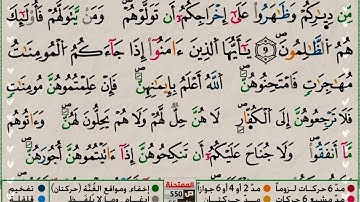 مِّن دِيَٰرِكُمْ وَظَٰهَرُوا۟ عَلَىٰٓ إِخْرَاجِكُمْ أَن تَوَلَّوْهُمْ ۚ وَمَن يَتَوَلَّهُمْ فَأُو۟لَٰٓئِكَ
هُمُ ٱلظَّٰلِمُونَ ۝٩ يَٰٓأَيُّهَا ٱلَّذِينَ ءَامَنُوٓا۟ إِذَا جَآءَكُمُ ٱلْمُؤْمِنَٰتُ
مُهَٰجِرَٰتٍ فَٱمْتَحِنُوهُنَّ ۖ ٱللَّهُ أَعْلَمُ بِإِيمَٰنِهِنَّ ۖ فَإِنْ عَلِمْتُمُوهُنَّ مُؤْمِنَٰتٍ
فَلَا تَرْجِعُوهُنَّ إِلَى ٱلْكُفَّارِ ۖ لَا هُنَّ حِلٌّ لَّهُمْ وَلَا هُمْ يَحِلُّونَ لَهُنَّ ۖ وَءَاتُوهُم
مَّآ أَنفَقُوا۟ ۚ وَلَا جُنَاحَ عَلَيْكُمْ أَن تَنكِحُوهُنَّ إِذَآ ءَاتَيْتُمُوهُنَّ أُجُورَهُنَّ ۚ
الممتحنة
550
مدّ 6 حركات لزوماً مدّ 2 أو 4 أو 6 جوازاً إخفاء، ومواقع الغُنَّة (حركتان) تفخيم
مدّ مشبع 6 حركات مدّ حركتان إدغام، وما لا يُلفَظ قلقلة